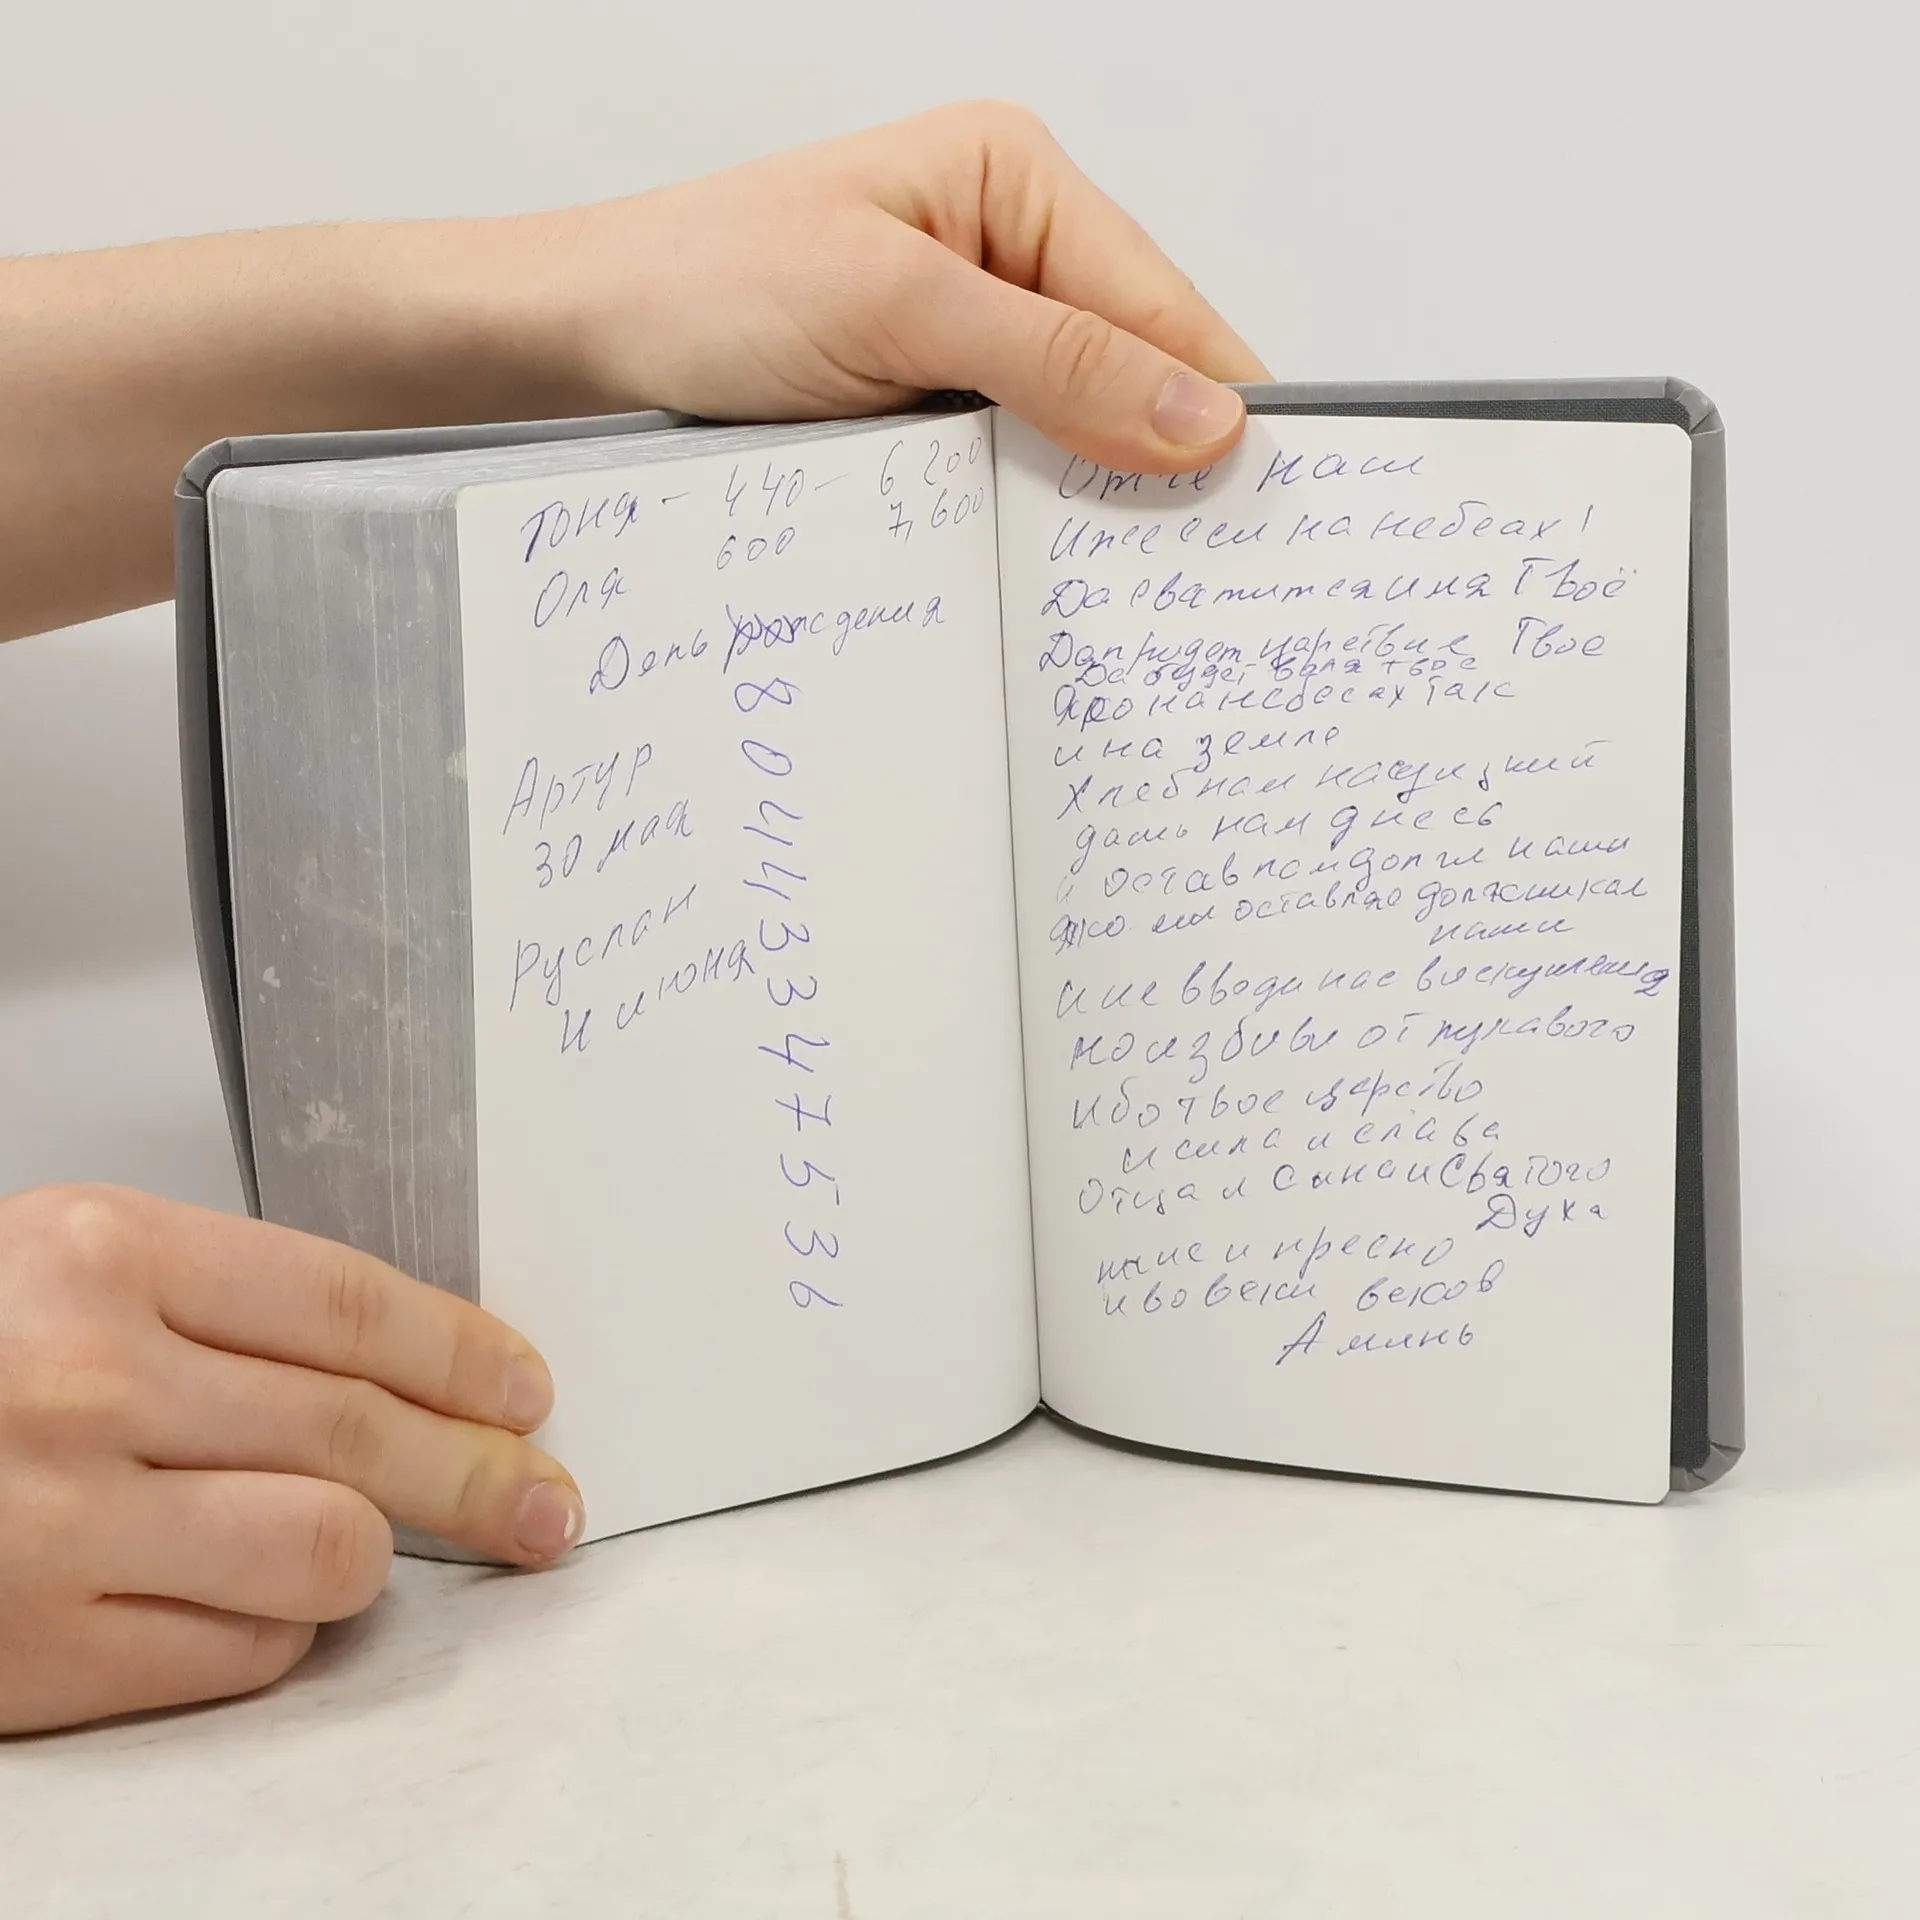 Тоня – 440 – 6 200
Оля 600 7,600
День рождения
8 0 4 4 3 3 4 7 5 3 6
Артур
30 мая
Руслан
И июня
Отче наш
Иже еси на небеах!
Да сватится имя Твоё
Да придет царствие Твое
Да будет воля твое
Яко на небесах так
и на земле
Хлеб нам насущький
дашь нам днесь
и остав нам долги наши
Яко мы оставляе должникам
наши
И не вводи нас во скушения
но избивы от лукавого
Ибо твое царство
и сила и слава
Отца и Сына и Святого
Духа
ныне и пресно
и во веки веков
Аминь